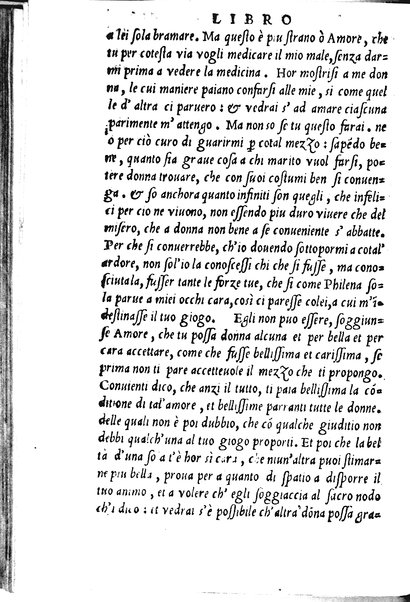 LIBRO
a lei sola bramare. Ma questo è piu strano ò Amore, che
tu per cotesta via vogli medicare il mio male, senza dar
mi prima a vedere la medicina. Hor mostrisi a me don
na, le cui maniere paiano confarsi alle mie, si come quel
le d'altra ci paruero: & vedrai s'ad amare ciascuna
parimente m'attengo. Ma non so se tu questo farai. ne
ò per ciò curo di guarirmi p cotal mezzo: sapẽdo be
ne, quanto sia graue cosa a chi marito vuol farsi, po
tere donna trouare, che con suoi costumi ben si conuen
ga. & so anchora quanto infiniti son quegli, che infeli
ci per cio ne viuono, non essendo piu duro viuere che del
misero, che a donna non bene a se conueniente s'abbatte.
Per che si conuerrebbe, ch'io douendo sottopormi a cotal'
ardore, non sol'io la conoscessi chi che si fusse, ma cono-
sciutala, fusser tante le forze tue, che si come Philena so
la parue a miei occhi cara, così ci paresse colei, a cui m'ĩ
destinasse il tuo giogo. Egli non puo essere, soggiun-
se Amore, che tu possa donna alcuna et per bella et per
cara accettare, come che fusse bellissima et carissima, se
prima non ti pare accetteuole il mezzo che ti propongo.
Conuienti dico, che anzi il tutto, ti paia bellissima la cõ-
ditione di tal'amore, et bellissime parranti tutte le donne.
delle quali non è poi dubbio, che cò qualche giuditio non
debbi qualch'una al tuo giogo proporti. Et poi che la bel
tà d'una so a t'è hor sì cara, che niun'altra puoi stimar-
ne piu bella, proua per a quanto di spatio a disporre il
tuo animo, et a volere ch'egli soggiaccia al sacro nodo
ch'i dico: et vedrai s'è possibile ch'altra dõna possa gra-